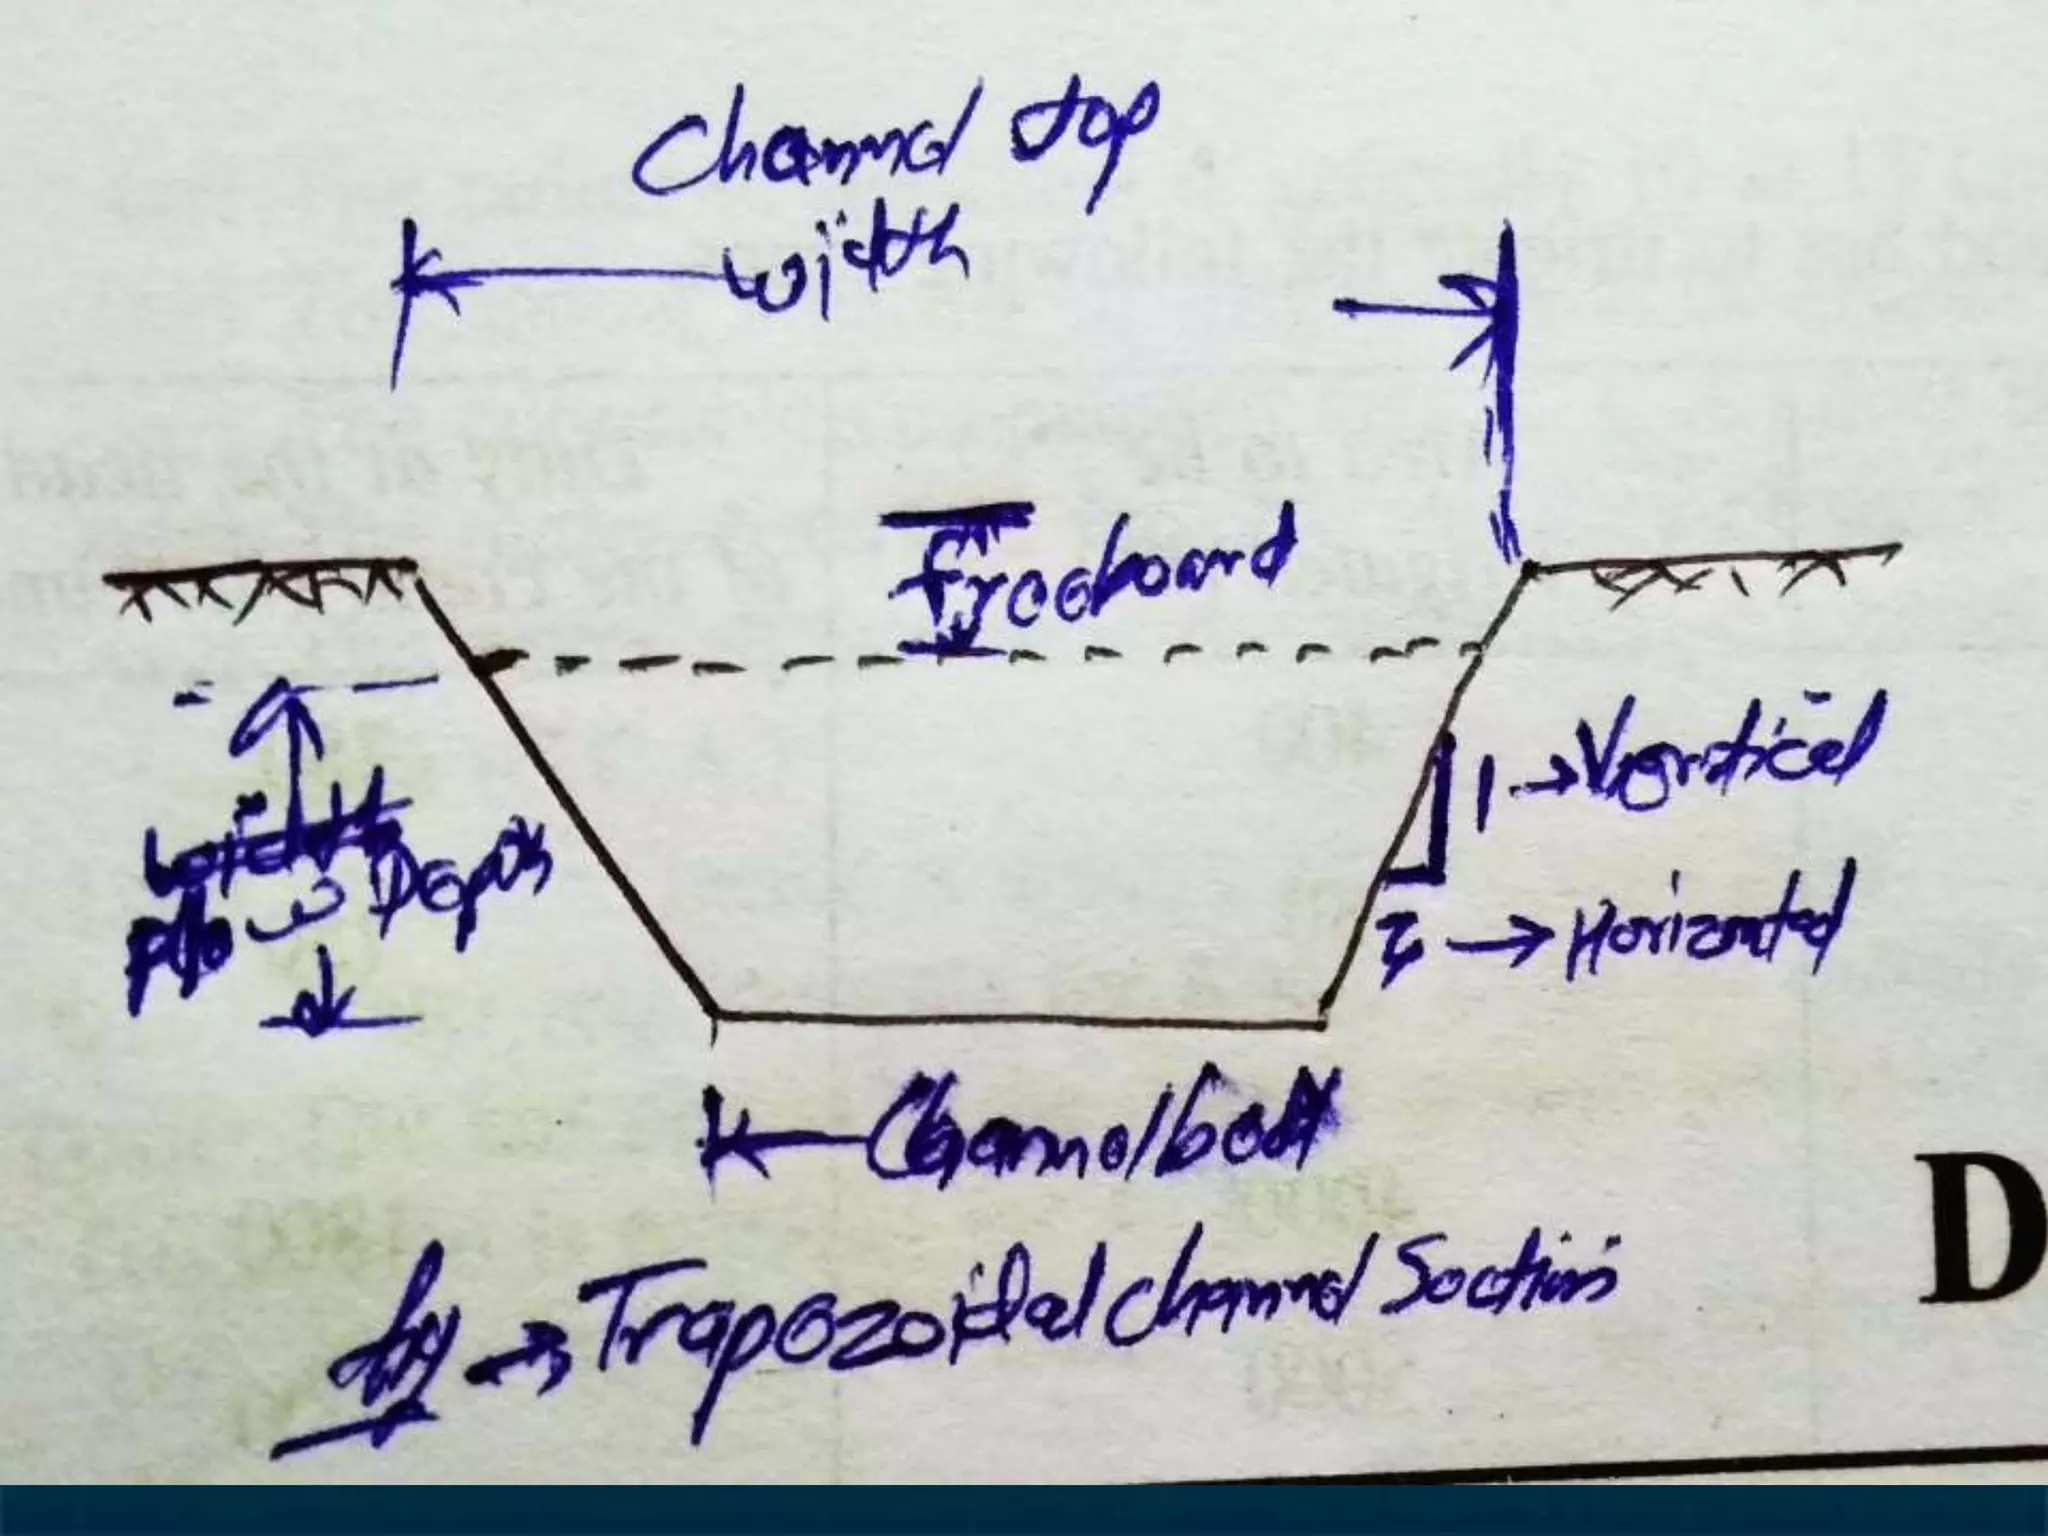 Channel top
width
Freeboard
1 → Vertical
Depth
2 → Horizontal
Channel bott
fig → Trapezoidal channel Section
D